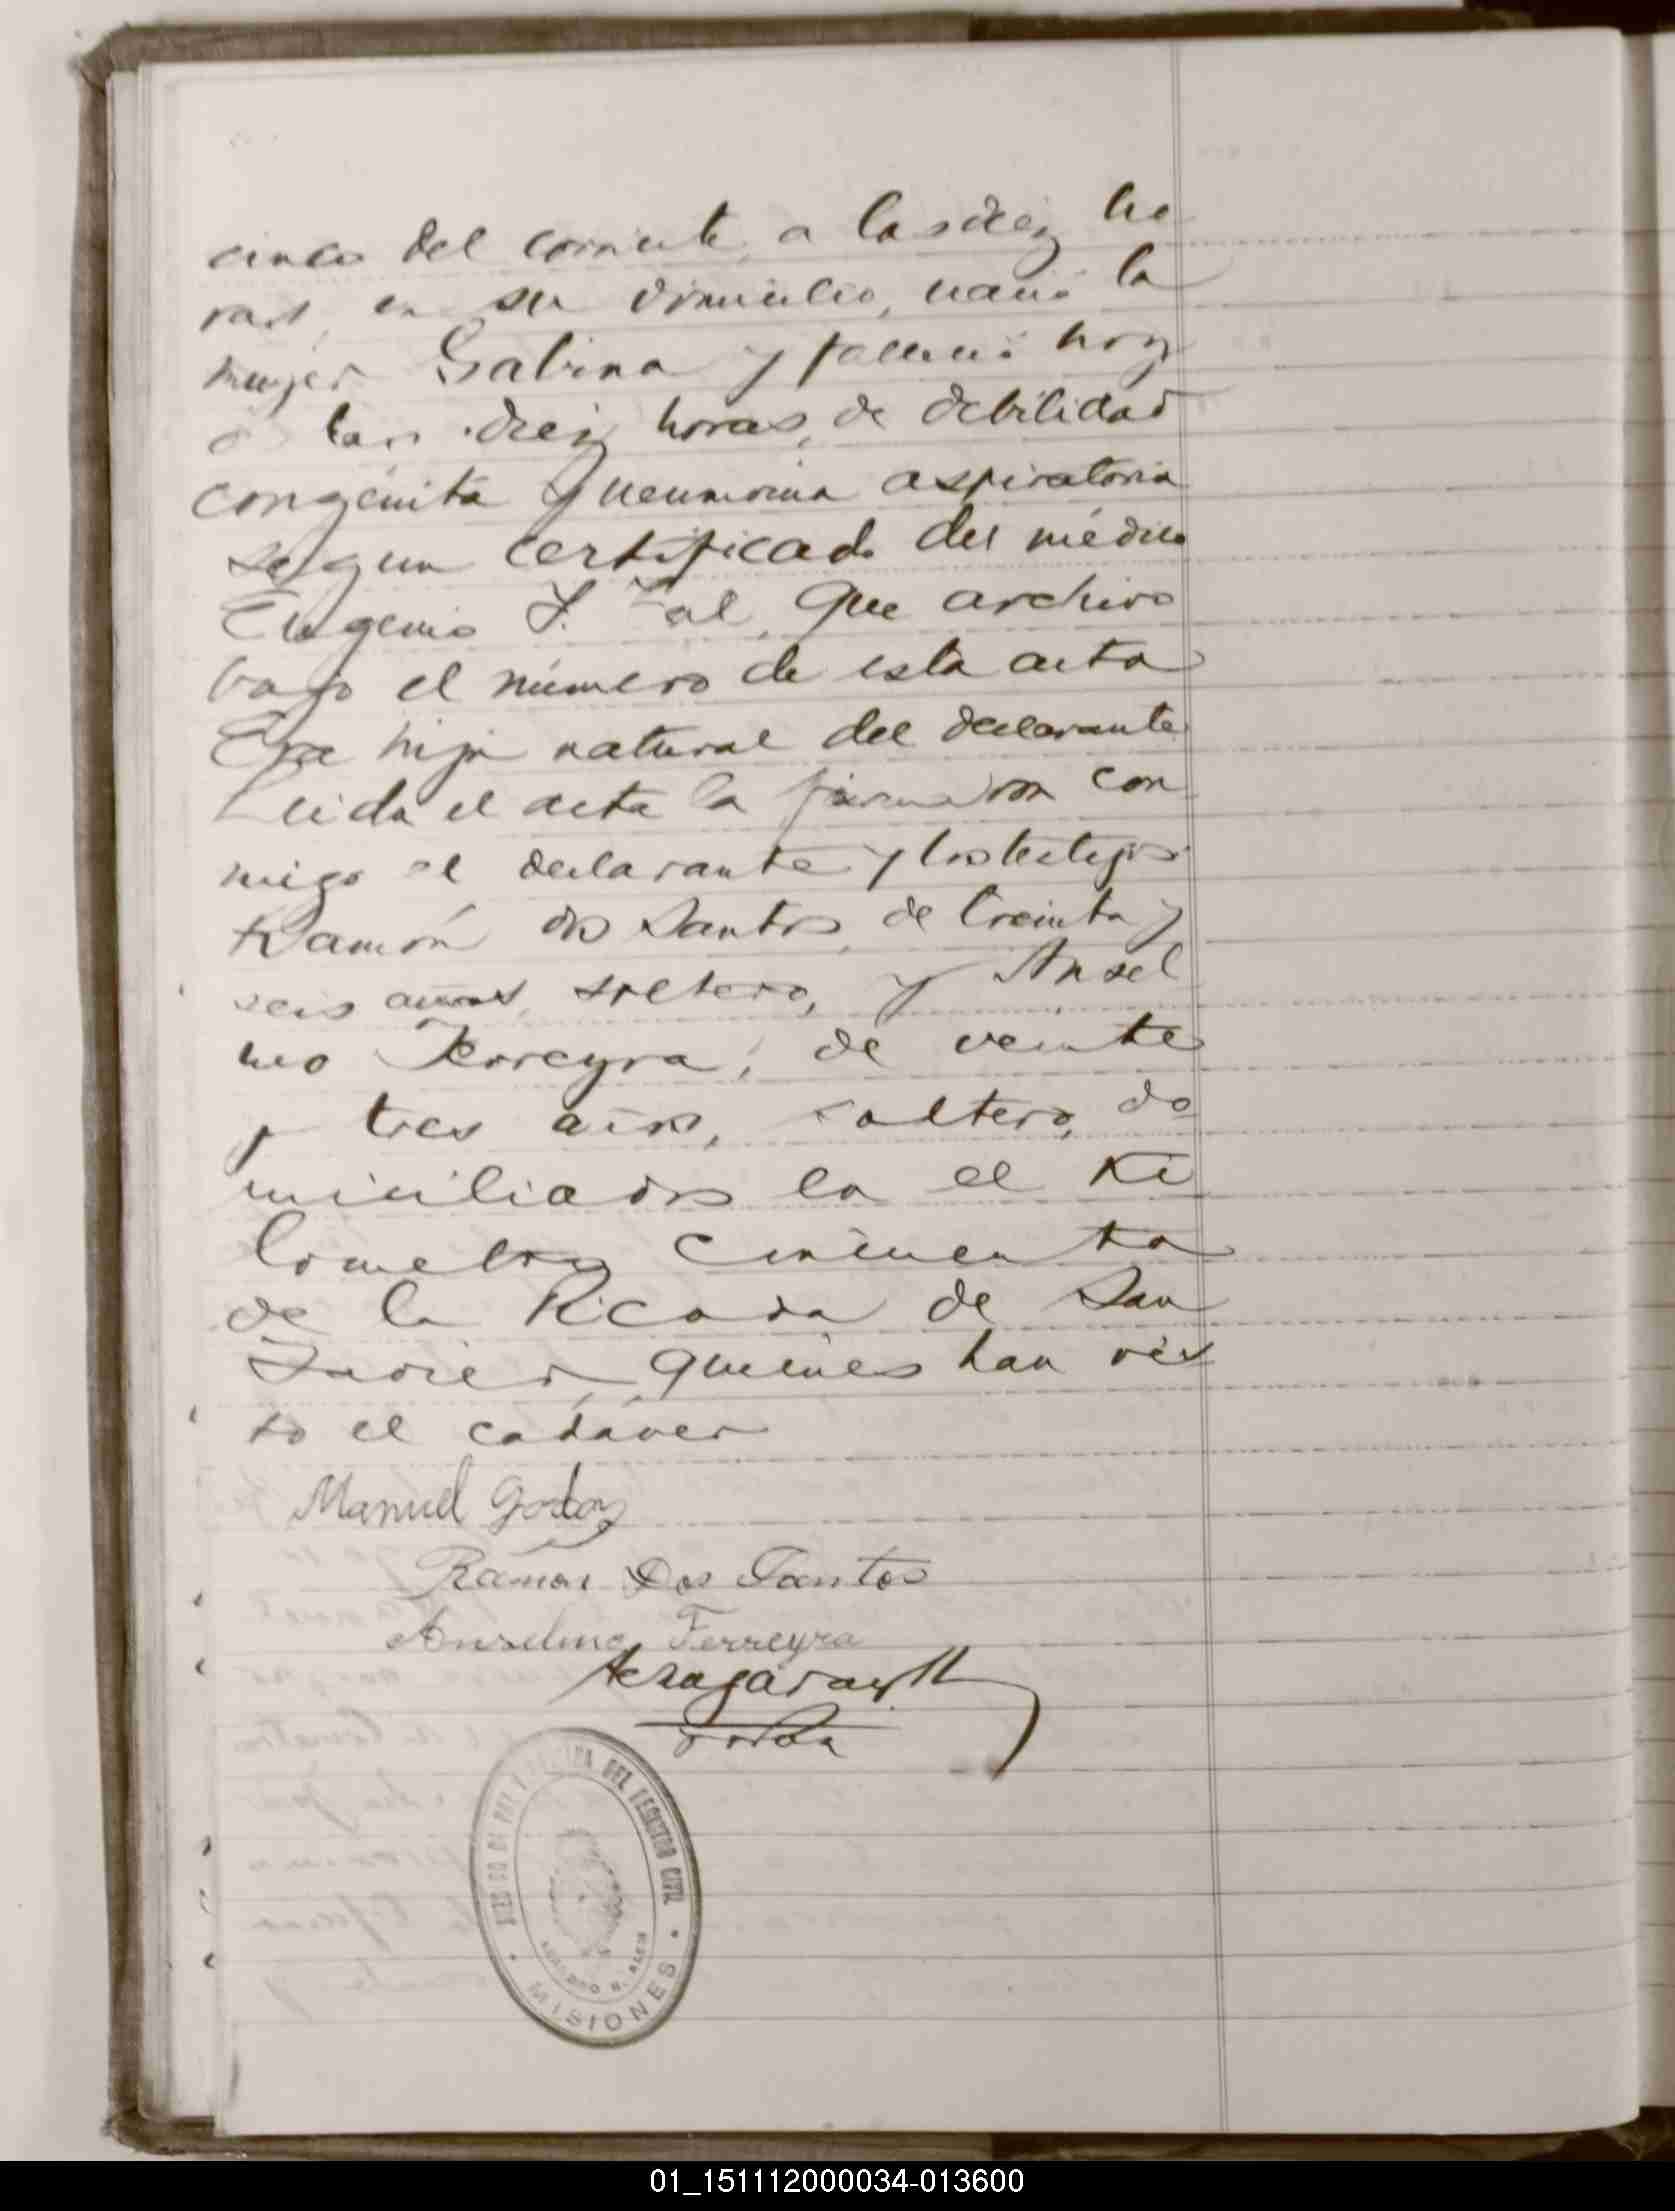 cinco del corriente, a las diez ho
ras, en su domicilio, nació la
mujer Sabina y falleció hoy
a las diez horas, de debilidad
congénita y neumonia aspiratoria
segun certificado del médico
Eugenio J. que archivo
bajo el número de esta acta
Era hija natural del declarante
Leida el acta la firmaron con
migo el declarante y los testigos
Ramón dos Santos, de treinta y
seis años, soltero, y Ansel
mo Ferreyra, de veinte
y tres años, soltero, do
miciliados en el Ki
lometro cincuenta
de la Picada de San
Javier, quienes han vis
to el cadáver
Manuel Godoy
Ramon Dos Santos
Anselmo Ferreyra
DE PAZ Y OFICINA DEL REGISTRO CIVIL
LEANDRO N. ALEM
MISIONES
01_151112000034-013600